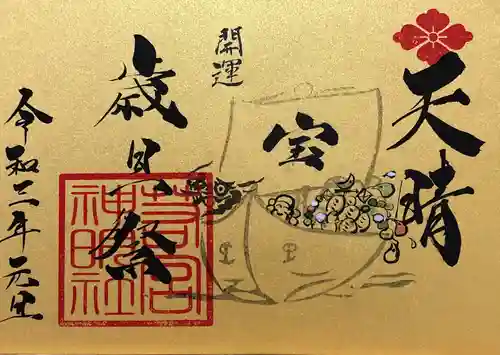 天晴
開運
宝
歳旦祭
令和二年元旦
神明社